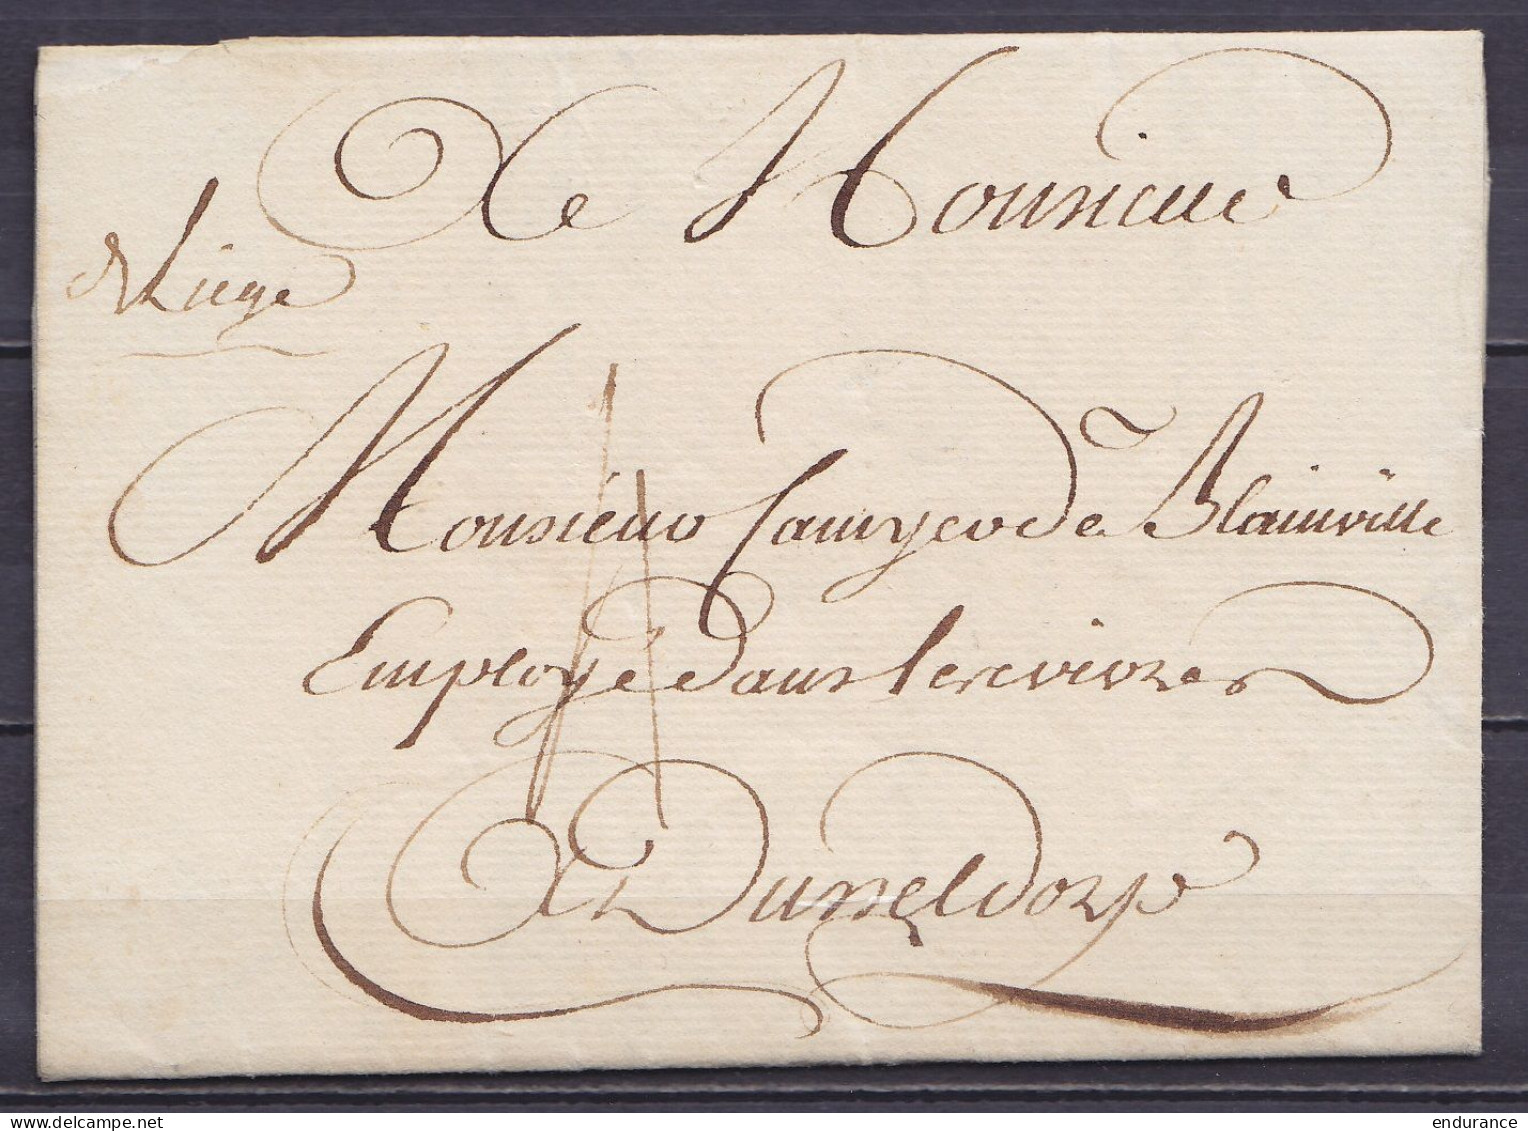 A Monsieur
de Liege
Monsieur Camyer de Blainville
Employé dans les vivres
A Dusseldorp
endurance